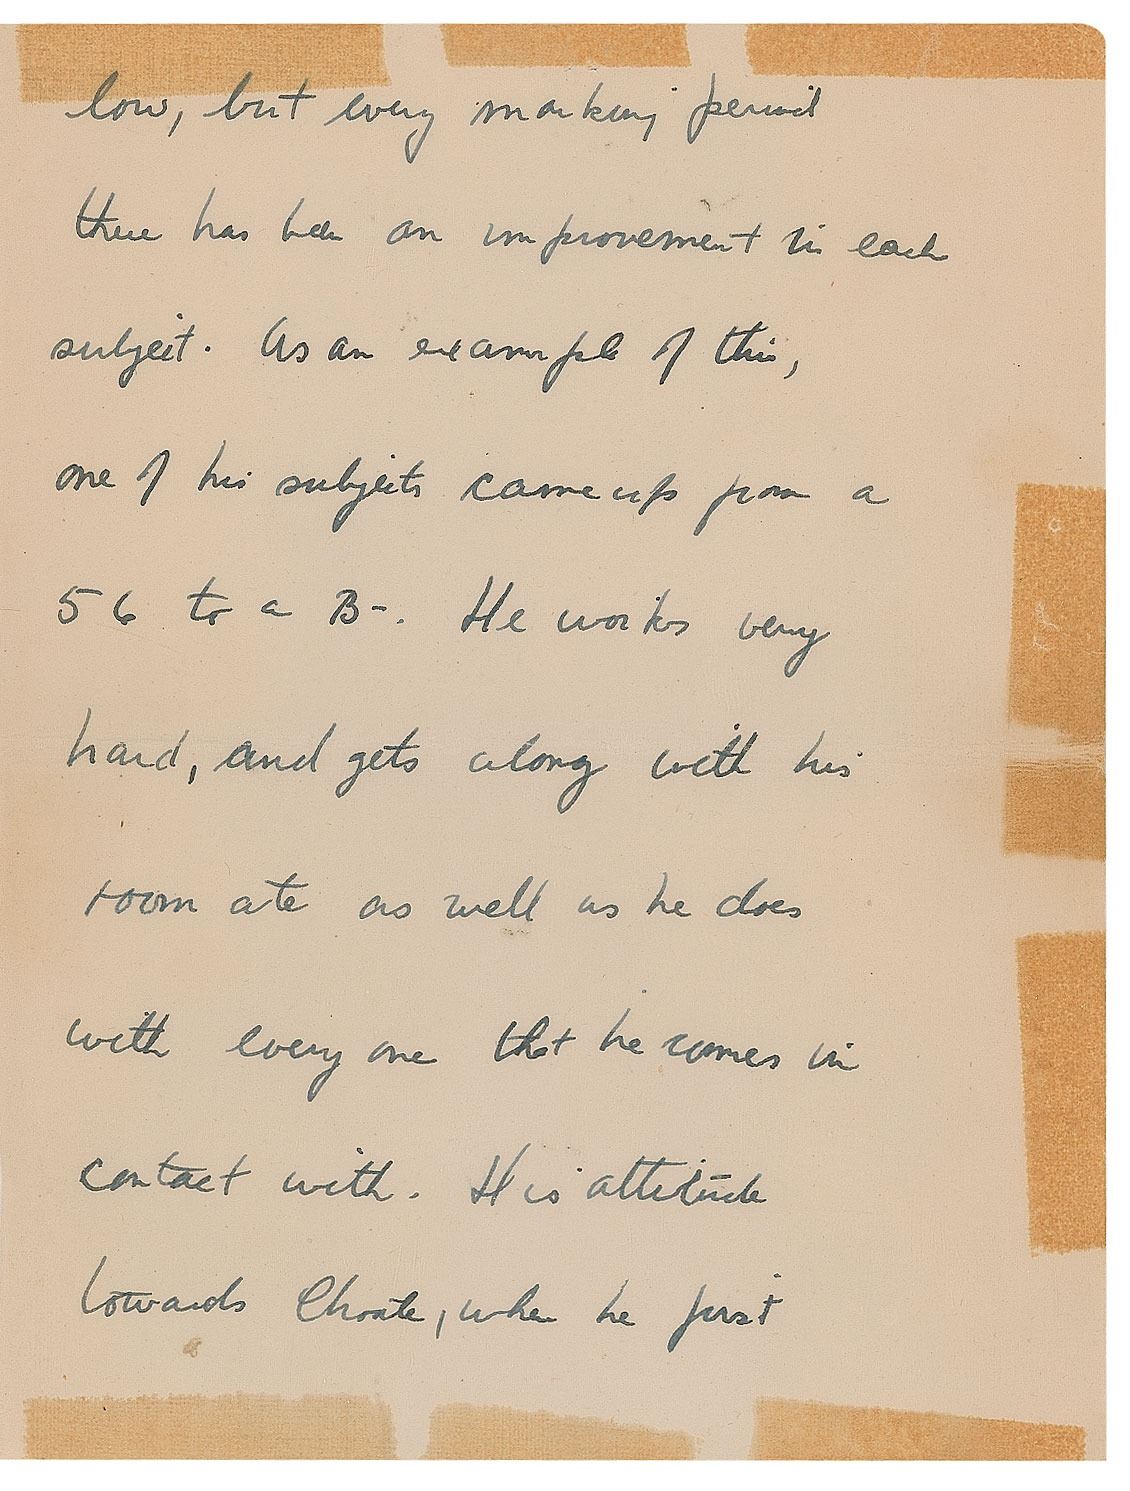 low, but every marking period
there has been an improvement in each
subject. As an example of this,
one of his subjects came up from a
56 to a B-. He works very
hard, and gets along with his
room ate as well as he does
with every one that he comes in
contact with. His attitude
towards Choate, when he first